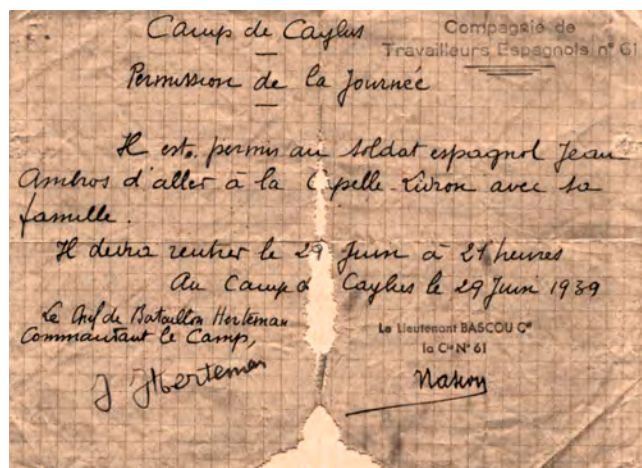 Camp de Caylus
Compagnie de
Travailleurs Espagnols n° 61
Permission de la Journée
Il est permis au soldat espagnol Jean
Ambros d'aller à la Capelle-Livron avec sa
famille.
Il devra rentrer le 29 Juin à 21 heures
Au Camp d Caylus le 29 Juin 1939
Le Chef de Bataillon Herteman
Commandant le Camp,
Le Lieutenant BASCOU Ct
la Cie N° 61
J Herteman